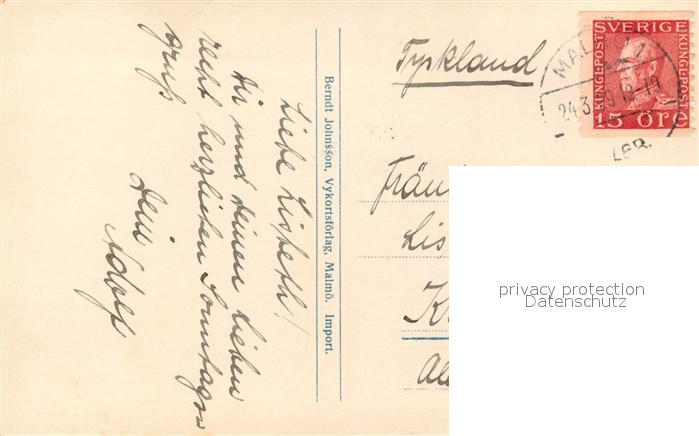 Liebe Lisbeth!
Dir und deinen Lieben
recht herzlichen Sonntags-
gruß
Dein
Adolf
Berndt Johnsson, Vykortsförlag, Malmö. Import.
Tyskland
SVERIGE
KUNGL·POST
KUNGL·POST
15 ÖRE
MALMÖ 1
24.3.29.18-19
LBR.
Fräu
Lis
K
Al
privacy protection
Datenschutz